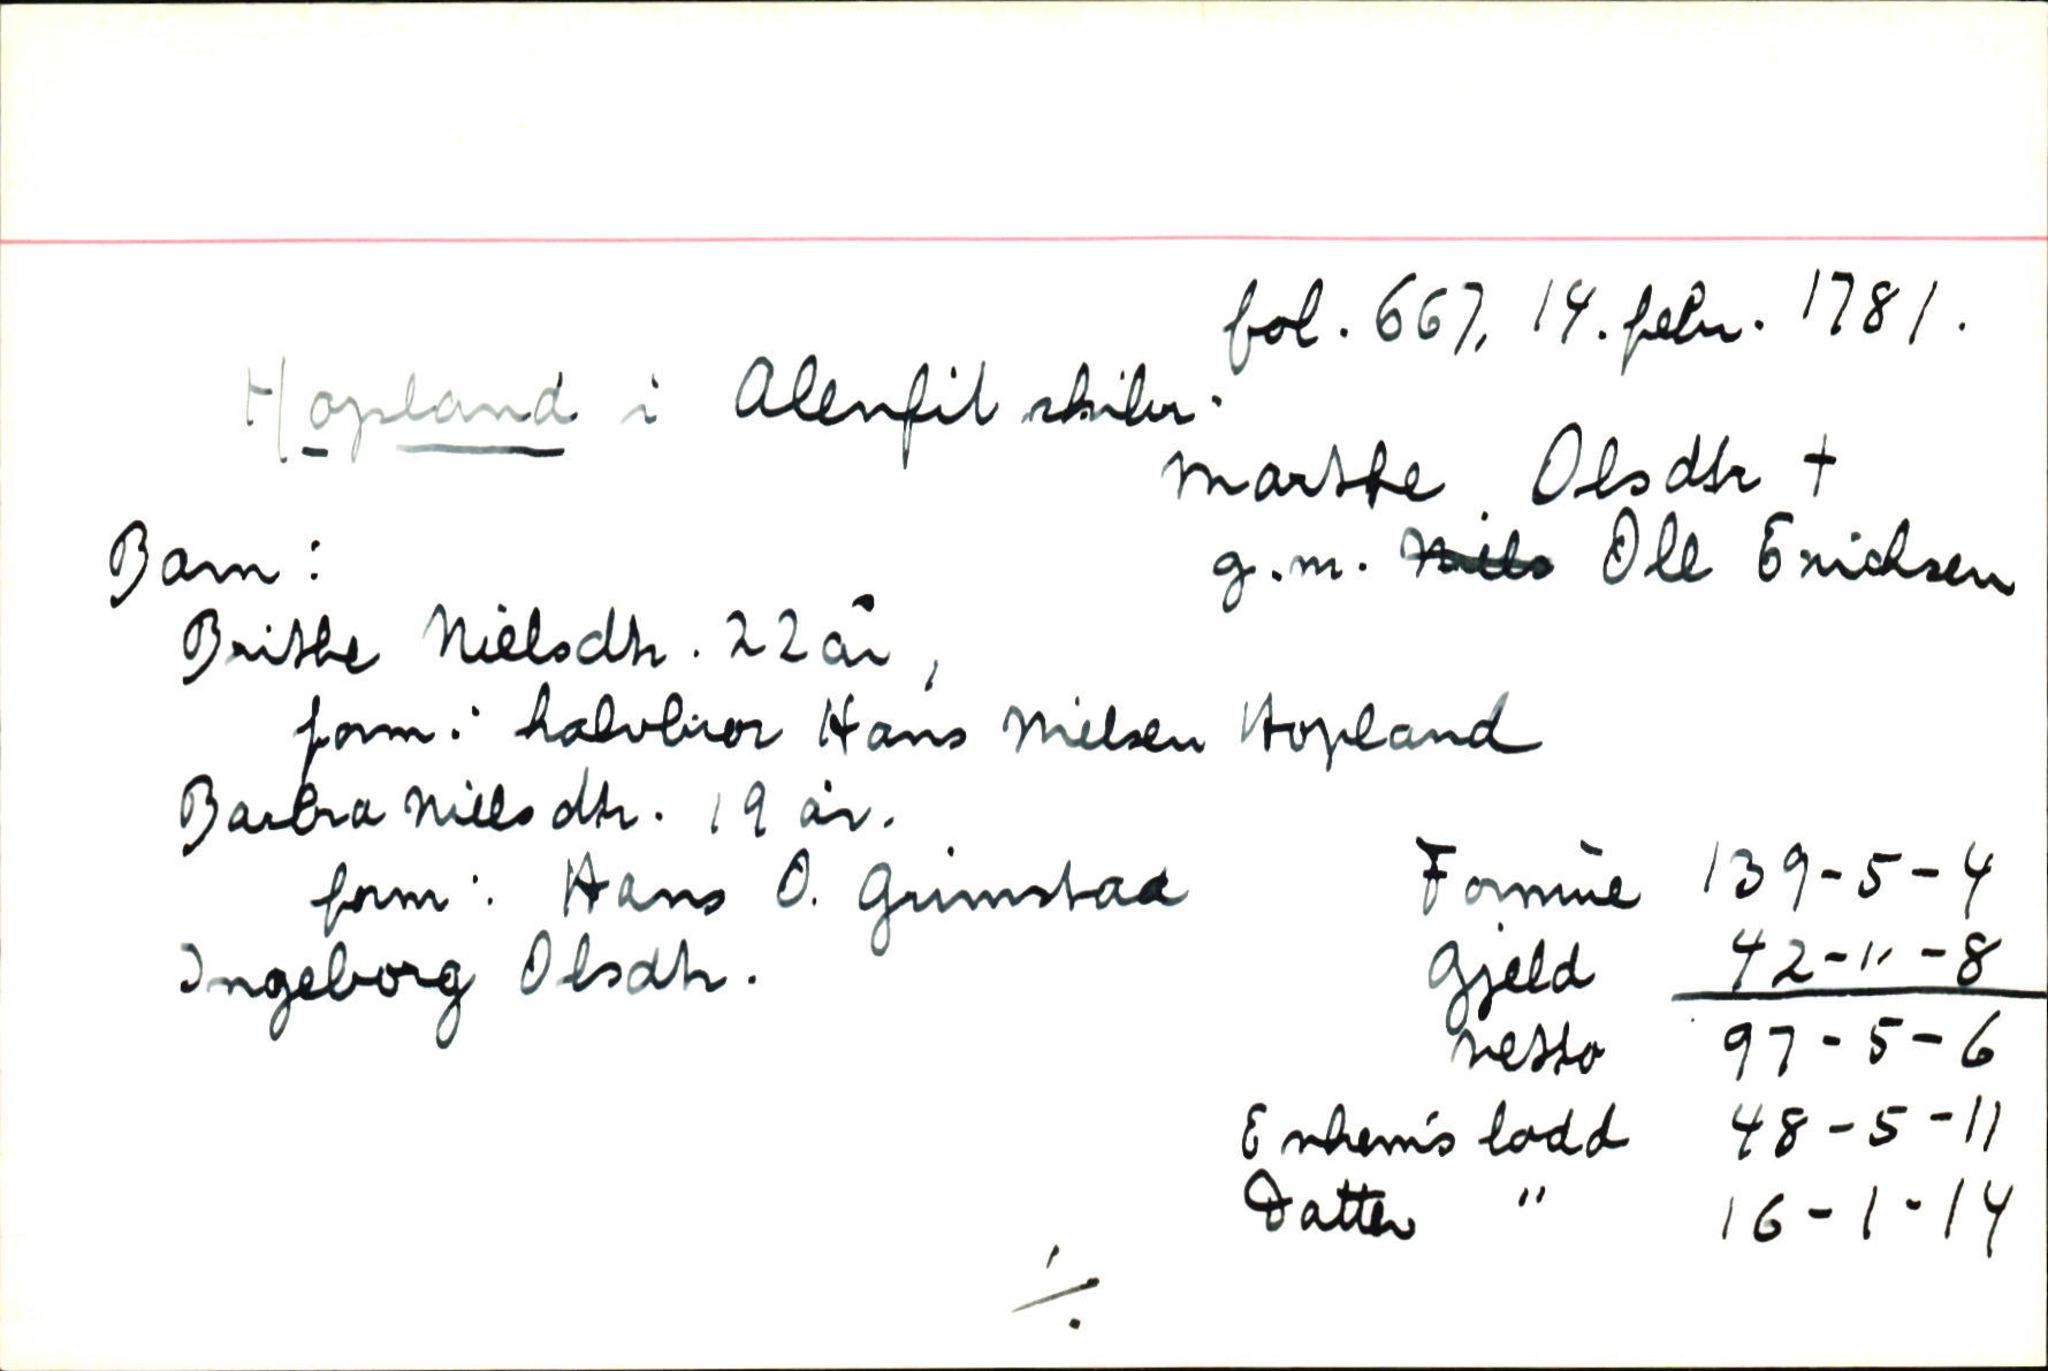 fol. 667, 14. febr. 1781.
Hopland i Alenfit skibr.
Marthe Olsdtr †
g.m. Niels Ole Erichsen
Barn:
Brithe Nielsdtr. 22 år,
form: halvbror Hans Nielsen Hopland
Barbra Nielsdtr. 19 år.
form: Hans O. Grimstad
Ingeborg Olsdtr.
Formue 139-5-4
Gjeld 42-"-8
netto 97-5-6
Enkem's lodd 48-5-11
Datter " 16-1-14
./.